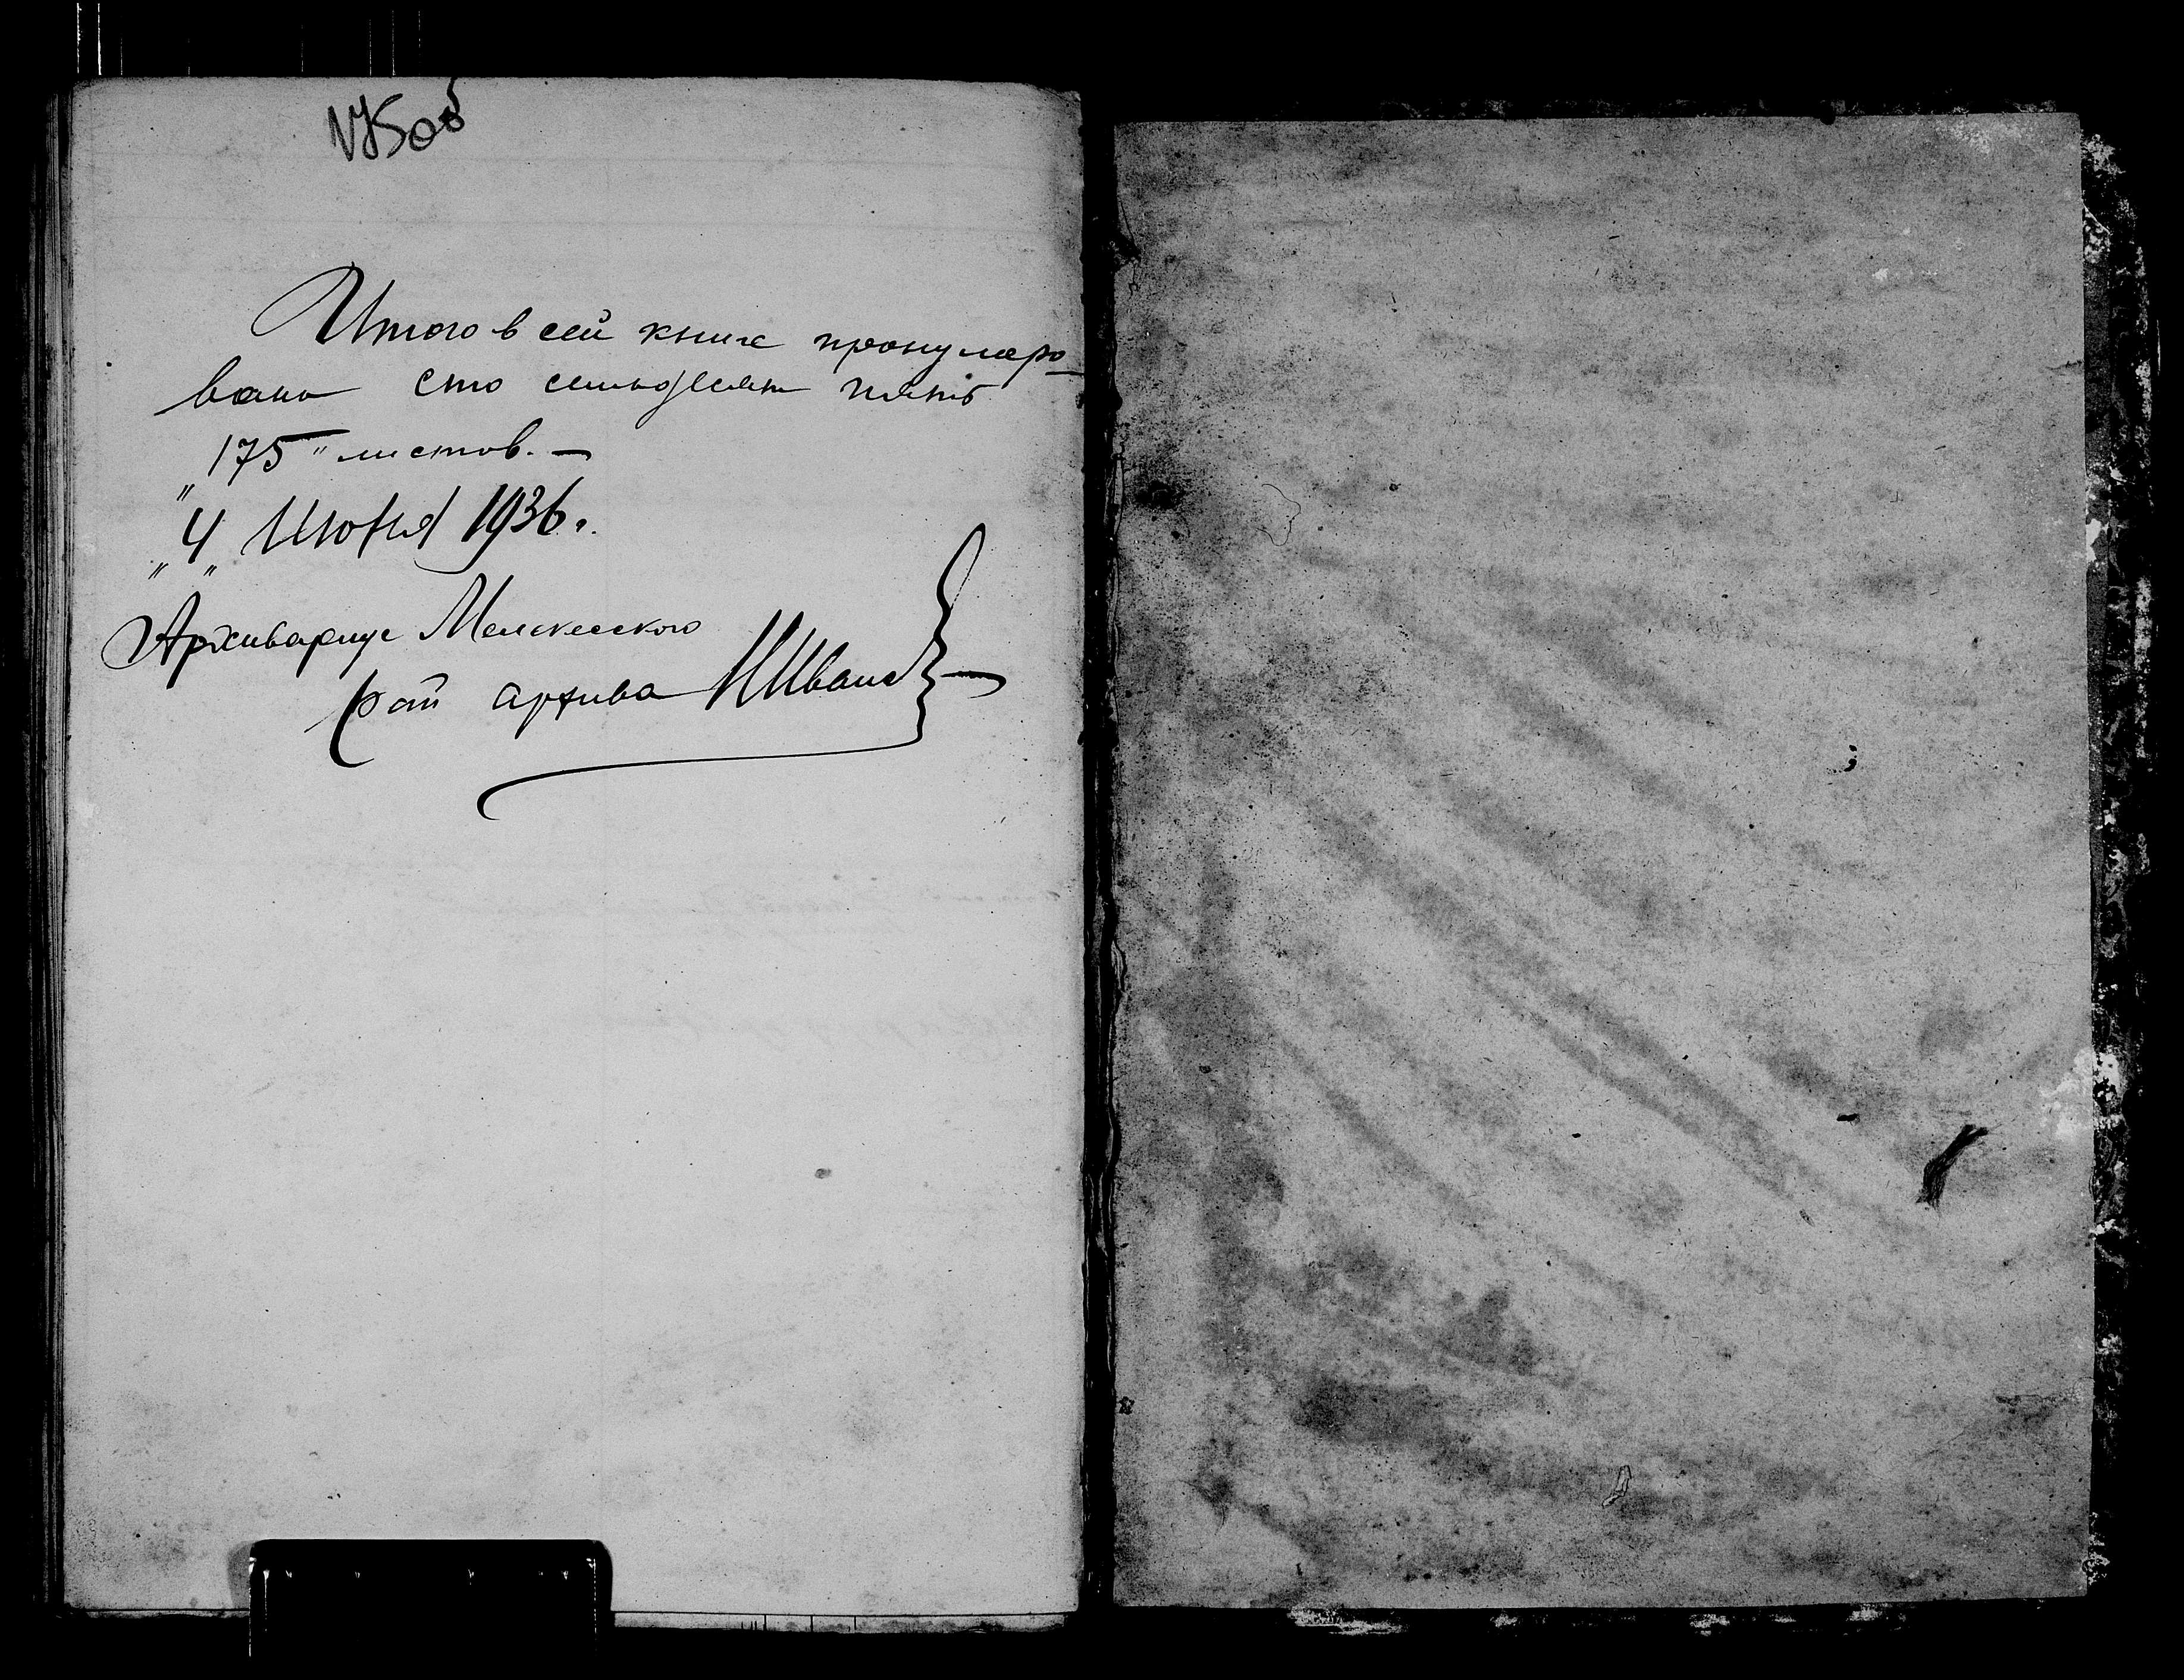 Итого в сей книге пронумеро-
вано сто семьдесят пять
"175" листов. —
"4" Июня 1936 г.
Архивариус Мелекесского
рай архива И Иванов